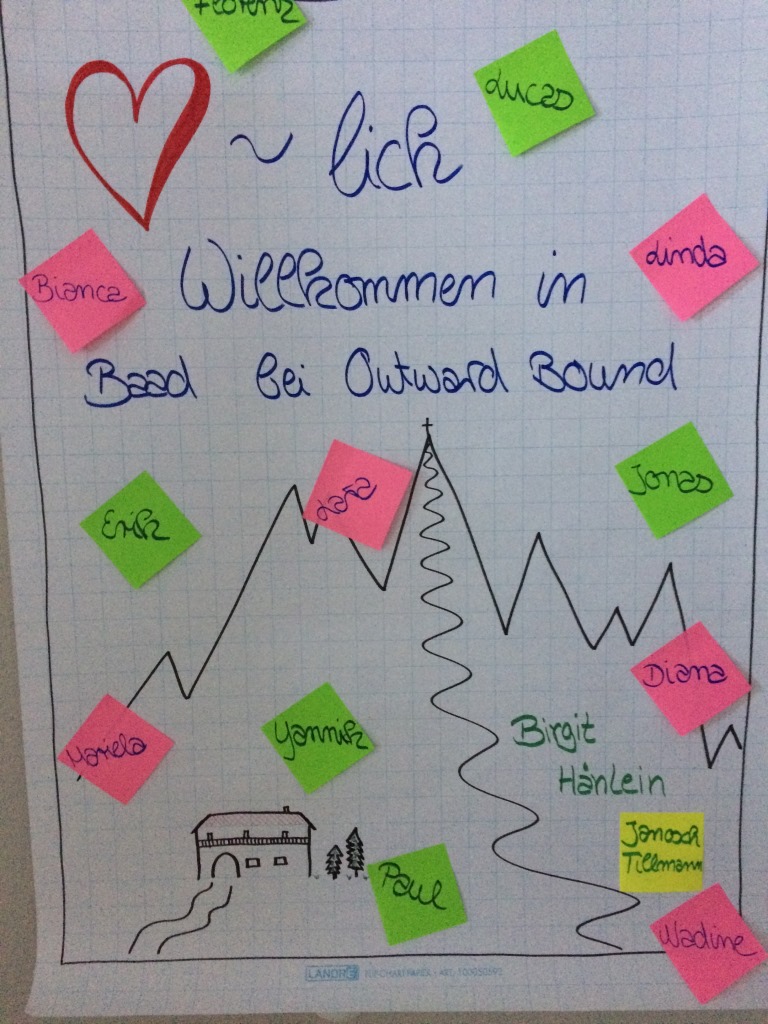 Florenz
Lucas
~ lich
Bianca
Willkommen in
Linda
Baad bei Outward Bound
Jonas
Erik
Diana
Mariela
Yannik
Birgit
Hänlein
Janosch
Tillmann
Paul
Nadine
LANDRÉ